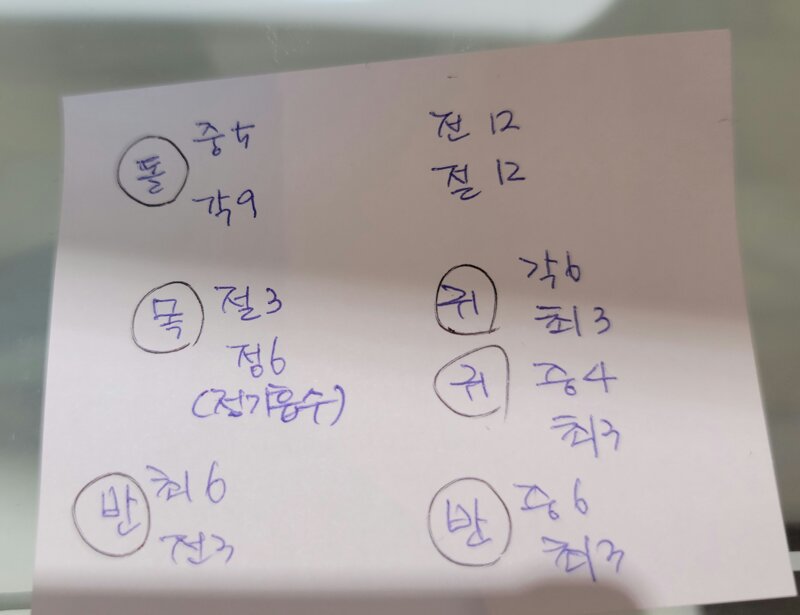 톨 중 5
각 9
전 12
절 12
목 절 3
정 6
(전기흡수)
귀 각 6
최 3
귀 중 4
최 3
반 최 6
전 3
반 중 6
최 3